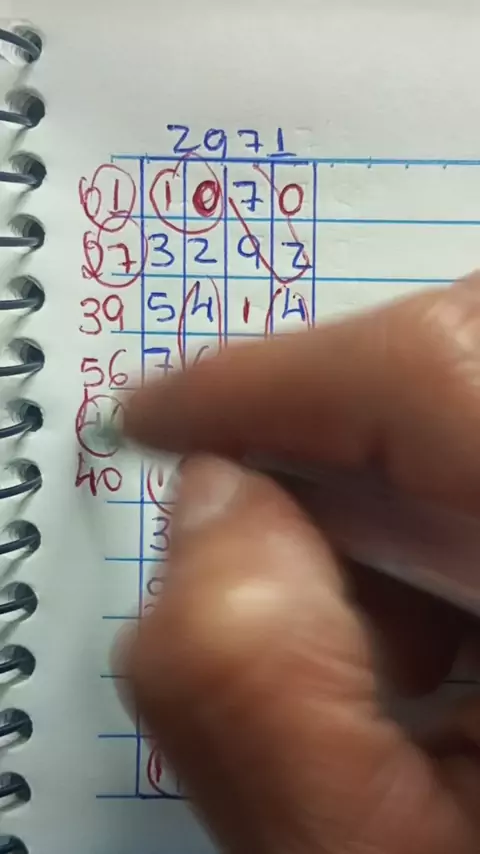 2971
61 1 0 7 0
27 3 2 9 2
39 5 4 1 4
56 7
40
3